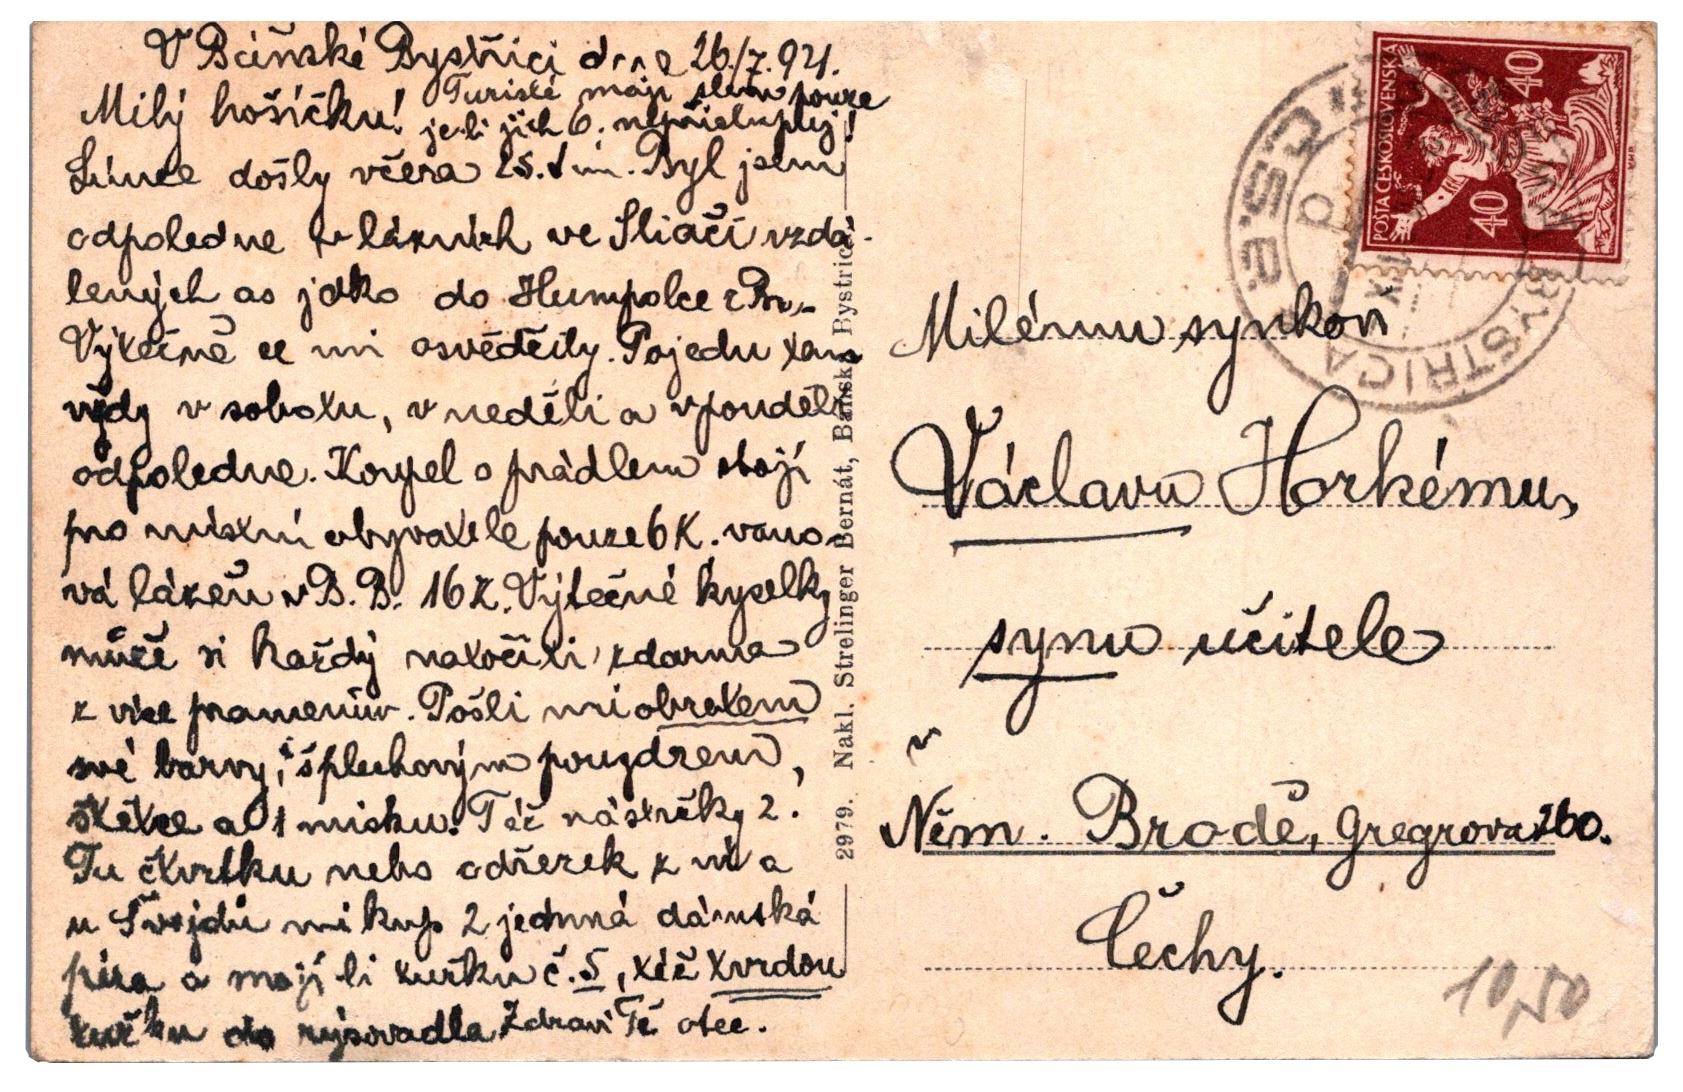 V Báňské Bystřici dne 26/7. 921.
Milý hošíčku! Turisté mají slevu pouze
je-li jich 6.
došly včera 25. t. m. Byl jsem
odpoledne v lázních ve Sliači vzdá-
lených as jako do Humpolce z Br.
Výtečně se mi osvědčily. Pojedu tam
vždy v sobotu, v neděli a v pondělí
odpoledne. Koupel s prádlem stojí
pro místní obyvatele pouze 6 K. vano-
vá lázeň v B. B. 16 K. Výtečné kyselky
může si každý natočiti zdarma
z více pramenův. Pošli mi obratem
své barvy, s plechovým pouzdrem,
štětce a 1 misku. Též násttrčky 2.
Tu čtvrtku nebo odřezek z ní a
u Švejdů mi kup 2 jemná dámská
péra a mají-li tužku č. 5, též tvrdou
tužku do rýsovadla Zdraví Tě otec.
2979. Nakl. Strelinger Bernát, Banská Bystrica
POŠTA ČESKOSLOVENSKÁ
40 40
BYSTRICA
Č.S.P.
Milému synkovi
Václavu Horkému,
synu učitele
v
Něm. Brodě, Gregrova 260.
Čechy.
10,50